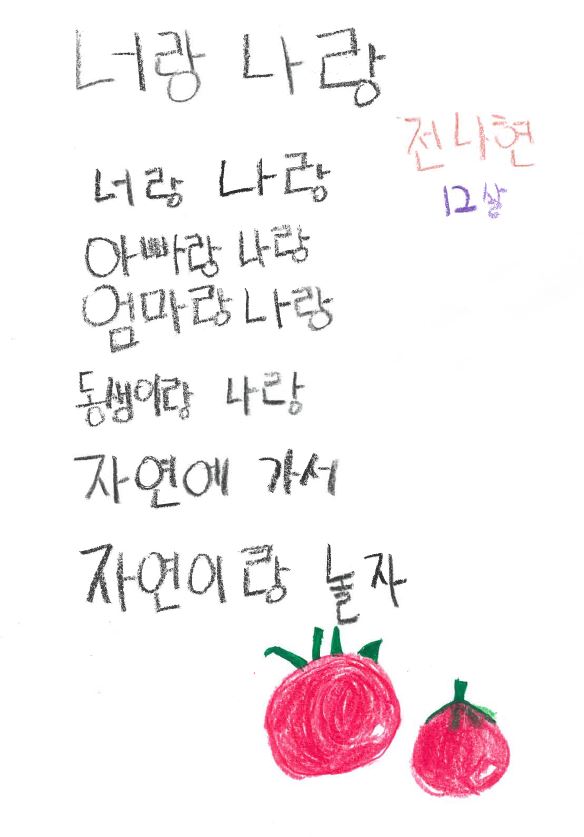 너랑 나랑
전나현
12살
너랑 나랑
아빠랑 나랑
엄마랑 나랑
동생이랑 나랑
자연에 가서
자연이랑 놀자